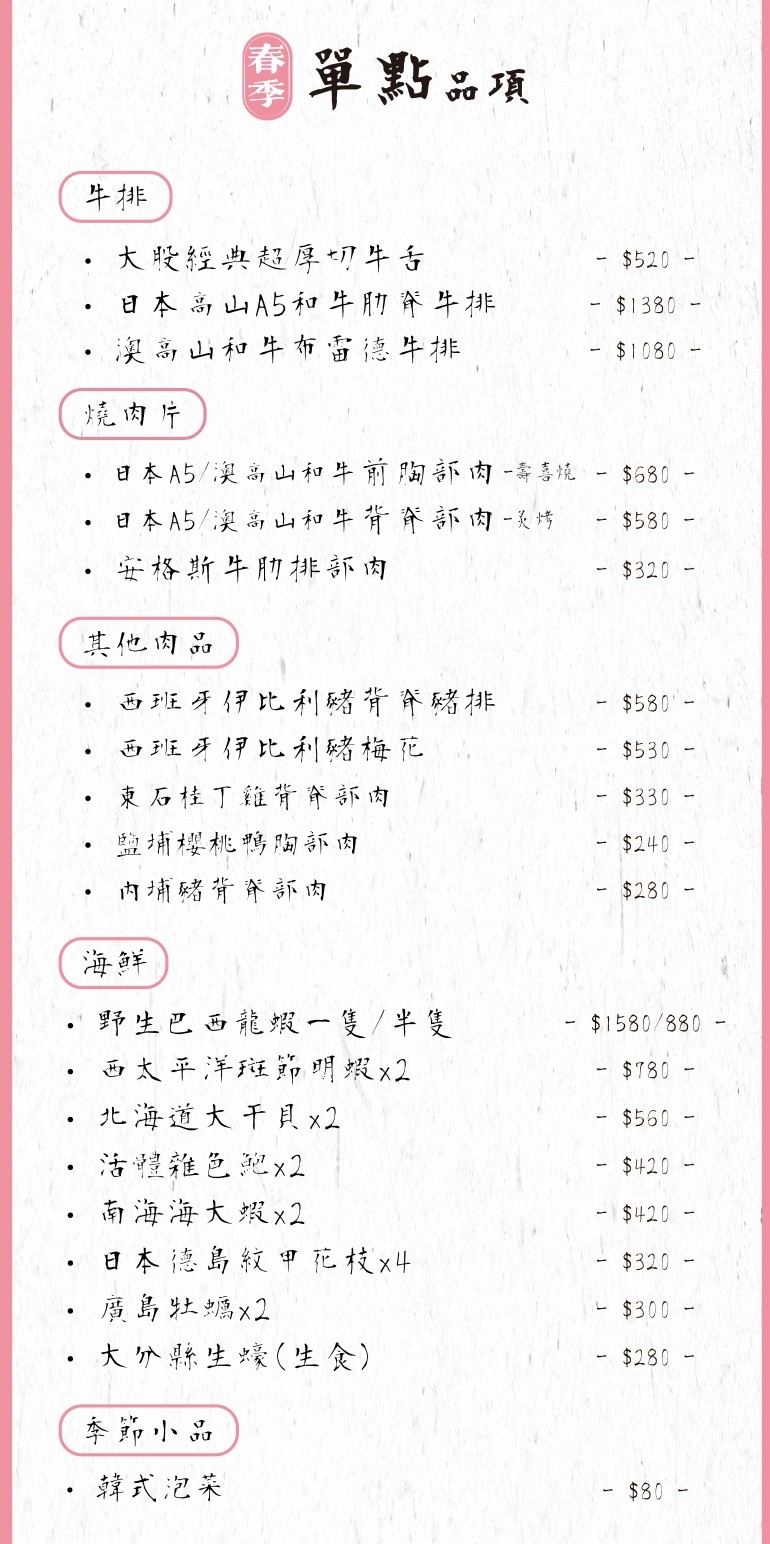 春季 單點品項
牛排
• 大股經典超厚切牛舌 - $520 -
• 日本高山A5和牛肋脊牛排 - $1380 -
• 澳高山和牛布雷德牛排 - $1080 -
燒肉片
• 日本A5/澳高山和牛前胸部肉-壽喜燒 - $680 -
• 日本A5/澳高山和牛背脊部肉-炙烤 - $580 -
• 安格斯牛肋排部肉 - $320 -
其他肉品
• 西班牙伊比利豬背脊豬排 - $580 -
• 西班牙伊比利豬梅花 - $530 -
• 東石桂丁雞背脊部肉 - $330 -
• 鹽埔櫻桃鴨胸部肉 - $240 -
• 內埔豬背脊部肉 - $280 -
海鮮
• 野生巴西龍蝦一隻/半隻 - $1580/880 -
• 西太平洋斑節明蝦x2 - $780 -
• 北海道大干貝x2 - $560 -
• 活體雜色鮑x2 - $420 -
• 南海海大蝦x2 - $420 -
• 日本德島紋甲花枝x4 - $320 -
• 廣島牡蠣x2 - $300 -
• 大分縣生蠔(生食) - $280 -
季節小品
• 韓式泡菜 - $80 -